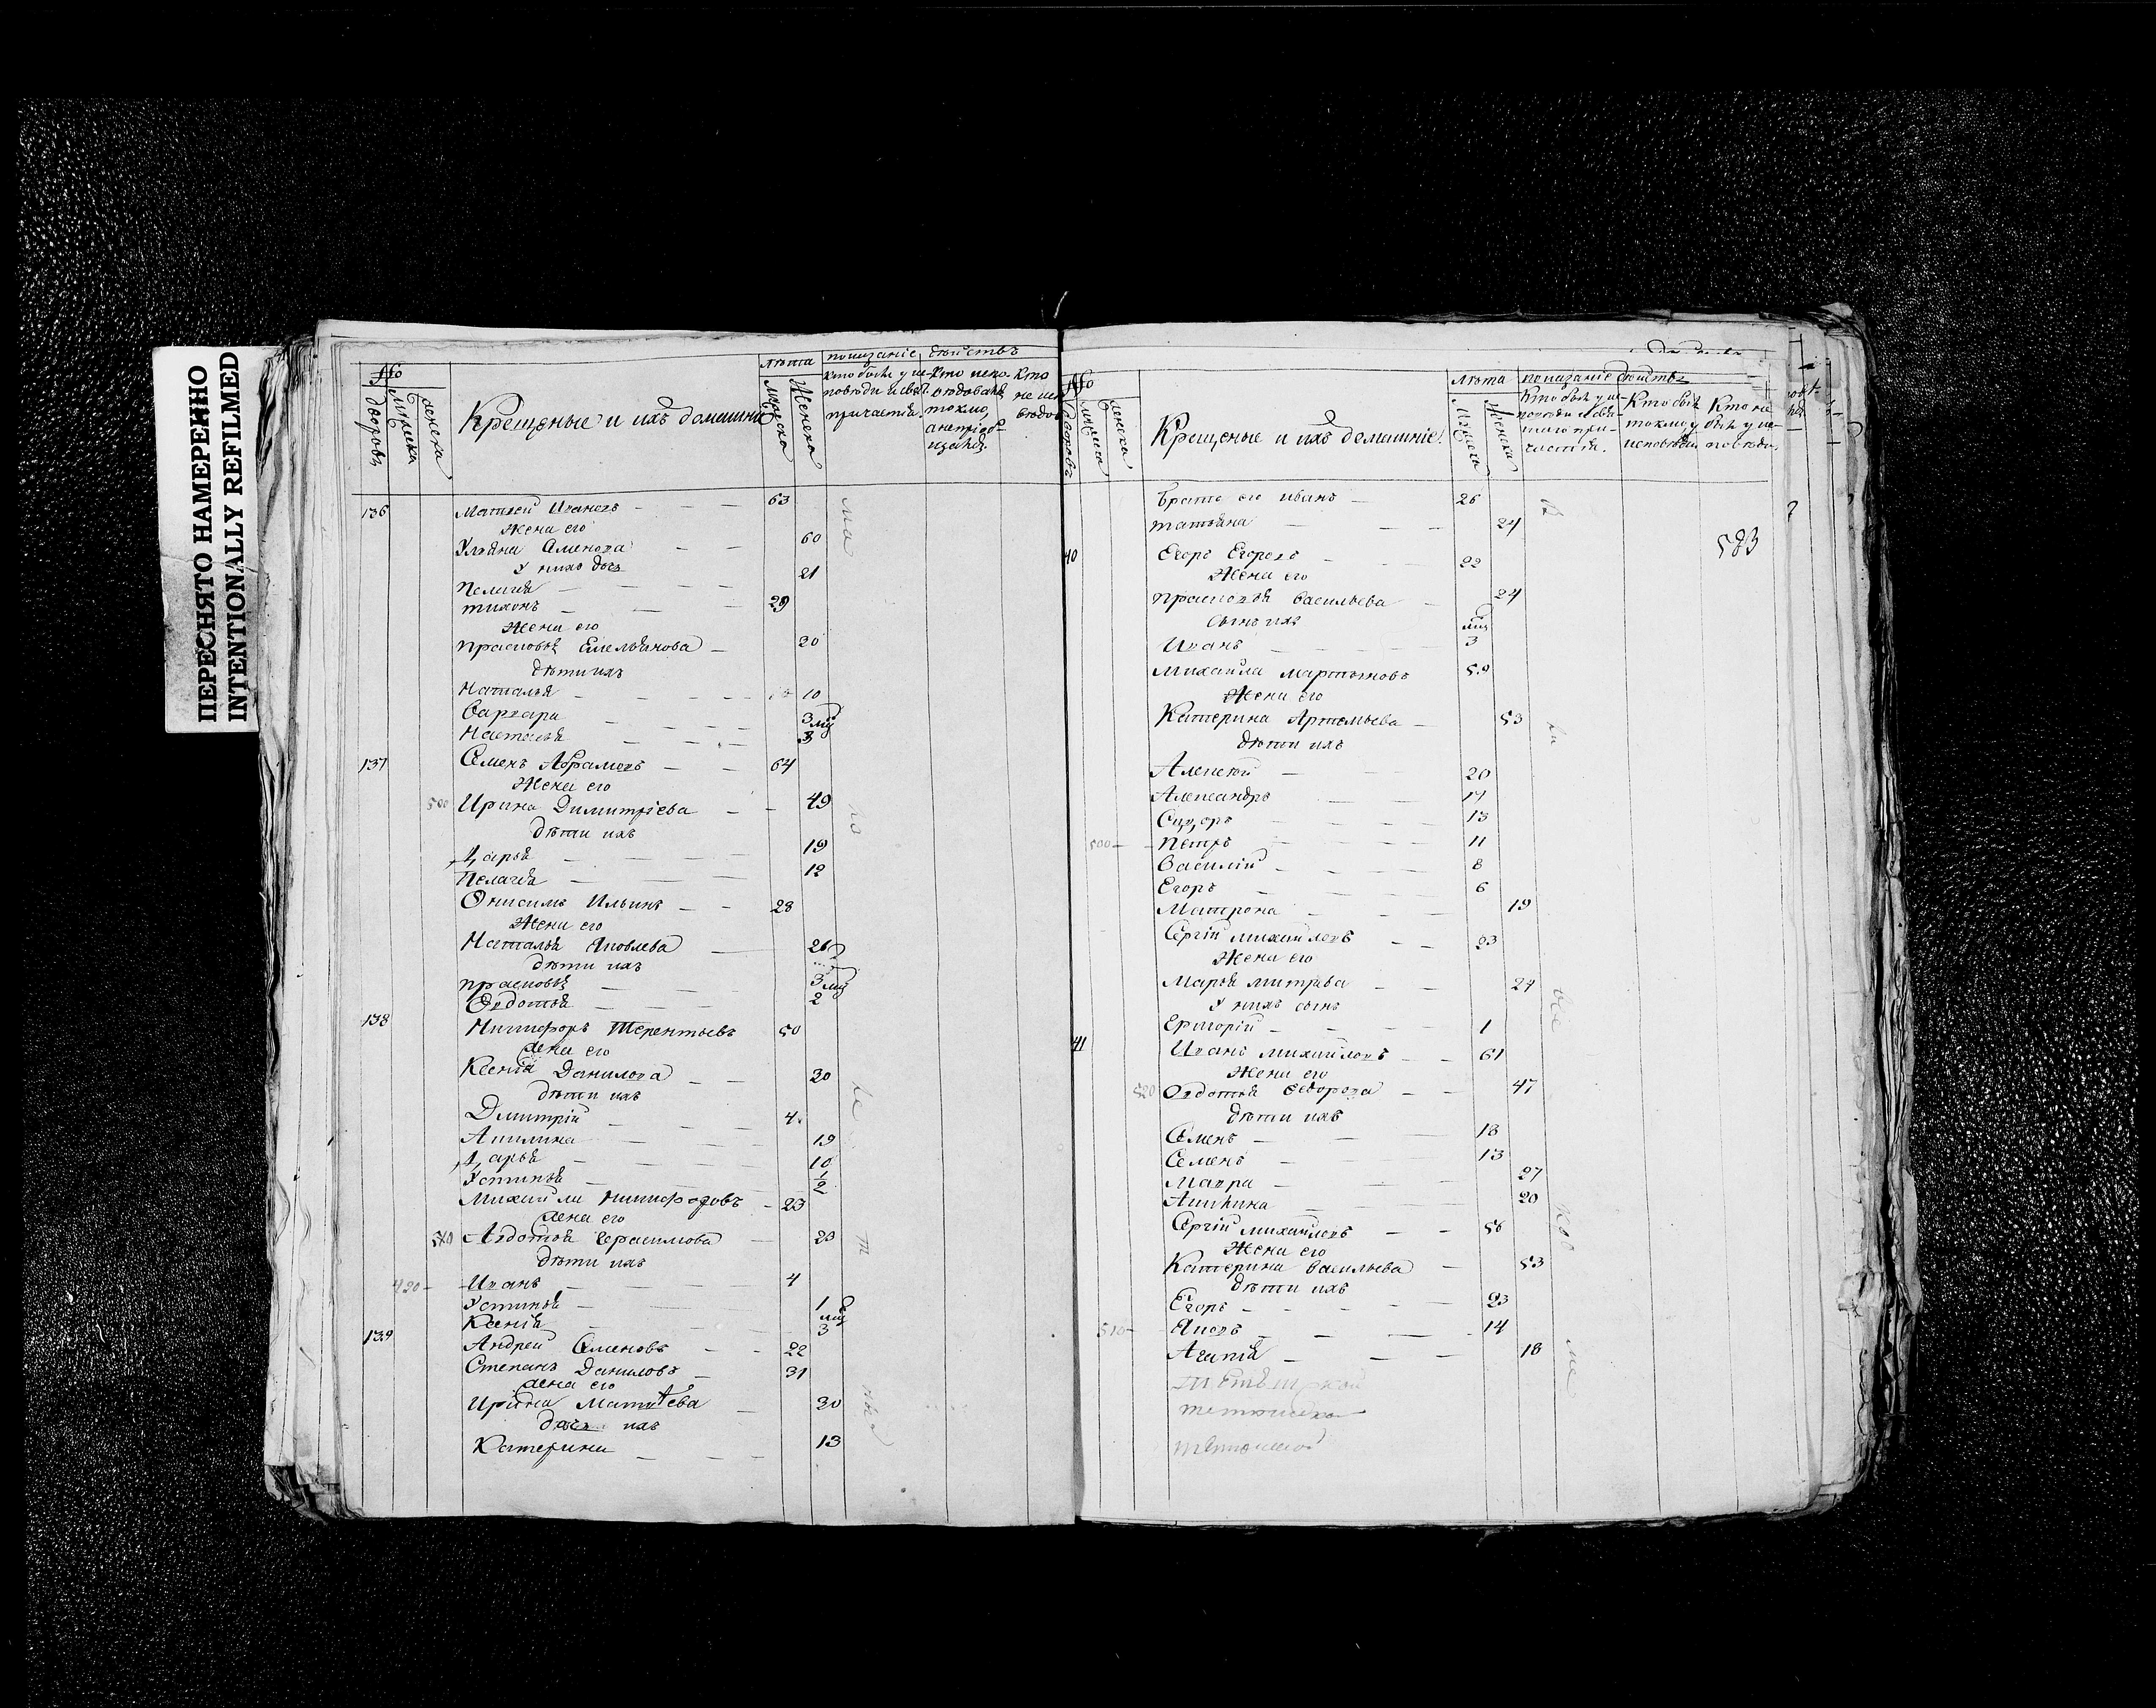 ПЕРЕСНЯТО НАМЕРЕННО
INTENTIONALLY REFILMED
№ дворовъ мужска женска
Крещеные и ихъ домашние
лѣта мужска Женска
показаніе дѣйствъ
кто былъ у исповѣди и свят. причастія.
Кто
136 Матвей Ивановъ 63
Жена его
Ульяна Семенова 60
У нихъ дочь
Пелагѣя 21
тихонъ 29
Жена его
прасковья Емельянова 20
дѣти ихъ
Наталья 10
Варвара 3
Настасья 3
137 Семенъ Абрамовъ 64
Жена его
500 Ирина Димитріева 49
дѣти ихъ
Дарья 19
Пелагѣя 12
Онисимъ Ильинъ 28
Жена его
Наталья Яковлева 26
дѣти ихъ
прасковья 3
Овдотья 2
138 Никифоръ Терентьевъ 50
жена его
Ксенія Данилова 30
дѣти ихъ
Дмитрій 4
Акилина 19
Дарья 10
Устинья 1/2
Михайла Никифоровъ 23
жена его
Авдотья Герасимова 23
дѣти ихъ
490 Иванъ 4
Устинья 1
Ксенія 3
139 Андрей Семеновъ 22
Степанъ Даниловъ 31
жена его
Ирина Матвѣева 30
дочь ихъ
Катерина 13
№ дворовъ мужска женска
Крещеные и ихъ домашніе
лѣта мужска Женска
показаніе дѣйствъ
Кто былъ у исповѣди и святаго причастія.
Кто былъ токмо у исповѣди
Кто не былъ у исповѣди
583
Братъ его иванъ 26
татьяна 24
40 Егоръ Егоровъ 22
Жена его
прасковья Васильева 24
сынъ ихъ
Иванъ 3
Михайла Мартыновъ 59
Жена его
Катерина Артемьева 53
дѣти ихъ
Алексѣй 20
Александръ 17
Сидоръ 13
500 Петръ 11
Василій 8
Егоръ 6
Матрона 19
Сергій михайловъ 23
Жена его
Марья митрева 24
У нихъ сынъ
Григорій 1
41 Иванъ михайловъ 61
Жена его
520 Овдотья Ѳедорова 47
дѣти ихъ
Семенъ 18
Семенъ 13
Мавра 27
Акилина 20
Сергій михайловъ 56
Жена его
Катерина Васильева 53
дѣти ихъ
Егоръ 23
510 Яковъ 14
Агапія 18